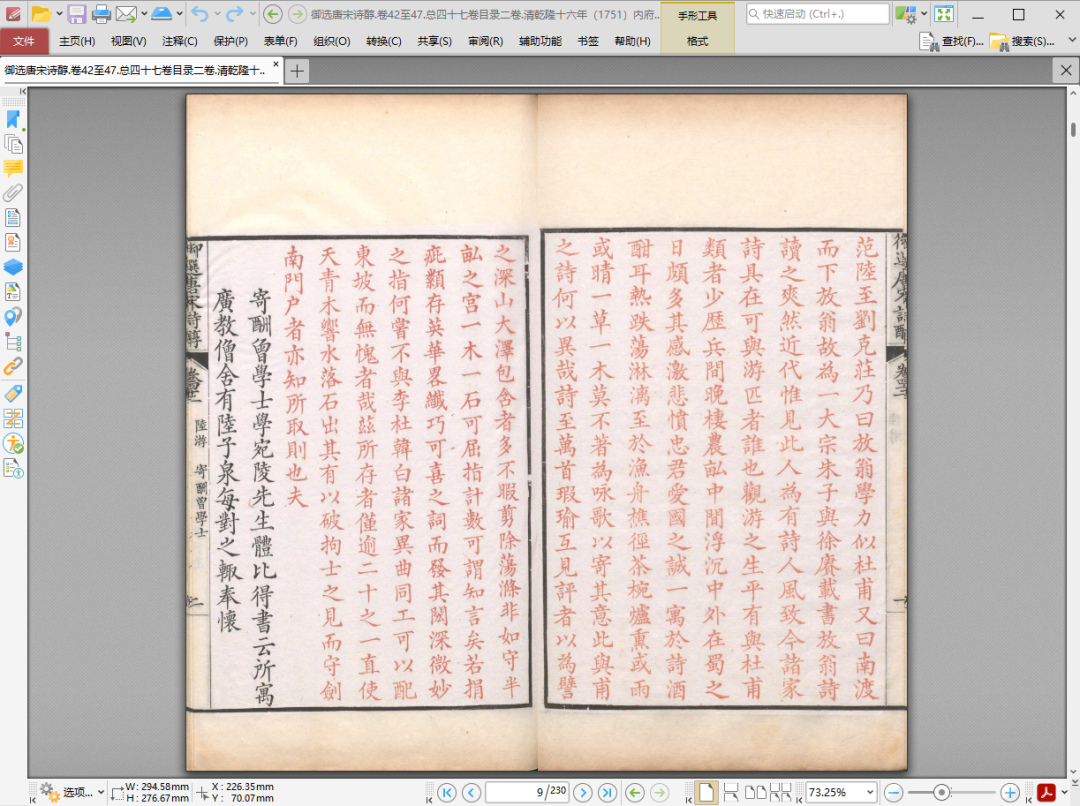 御选唐宋诗醇.卷42至47.总四十七卷目录二卷.清乾隆十六年（1751）内府..
手形工具
快速启动 (Ctrl+.)
文件
主页(H)
视图(V)
注释(C)
保护(P)
表单(F)
组织(O)
转换(C)
共享(S)
审阅(R)
辅助功能
书签
帮助(H)
格式
查找(F)...
搜索(S)...
御选唐宋诗醇.卷42至47.总四十七卷目录二卷.清乾隆十..
范陸至劉克莊乃曰放翁學力似杜甫又曰南渡
而下放翁故為一大宗朱子與徐賡載書放翁詩
讀之爽然近代惟見此人為有詩人風致今諸家
詩具在可與游匹者誰也觀游之生平有與杜甫
類者少歷兵間晚棲農畝中間浮沉中外在蜀之
日頗多其感激悲憤忠君愛國之誠一寓於詩酒
酣耳熱跌蕩淋漓至於漁舟樵徑茶椀爐熏或雨
或晴一草一木莫不著為咏歌以寄其意此與甫
之詩何以異哉詩至萬首瑕瑜互見評者以為譬
之深山大澤包含者多不暇剪除蕩滌非如守半
畝之宫一木一石可屈指計數可謂知言矣若捐
疵纇存英華畧纖巧可喜之詞而發其閎深微妙
之指何嘗不與李杜韓白諸家異曲同工可以配
東坡而無愧者哉兹所存者僅逾二十之一直使
天青木響水落石出其有以破拘士之見而守劍
南門户者亦知所取則也夫
寄酬曾學士學宛陵先生體比得書云所寓
廣教僧舍有陸子泉每對之輒奉懷
御選唐宋詩醇
陸游 寄酬曾學士
選项...
W: 294.58mm
H: 276.67mm
X: 226.35mm
Y: 70.07mm
9/230
73.25%